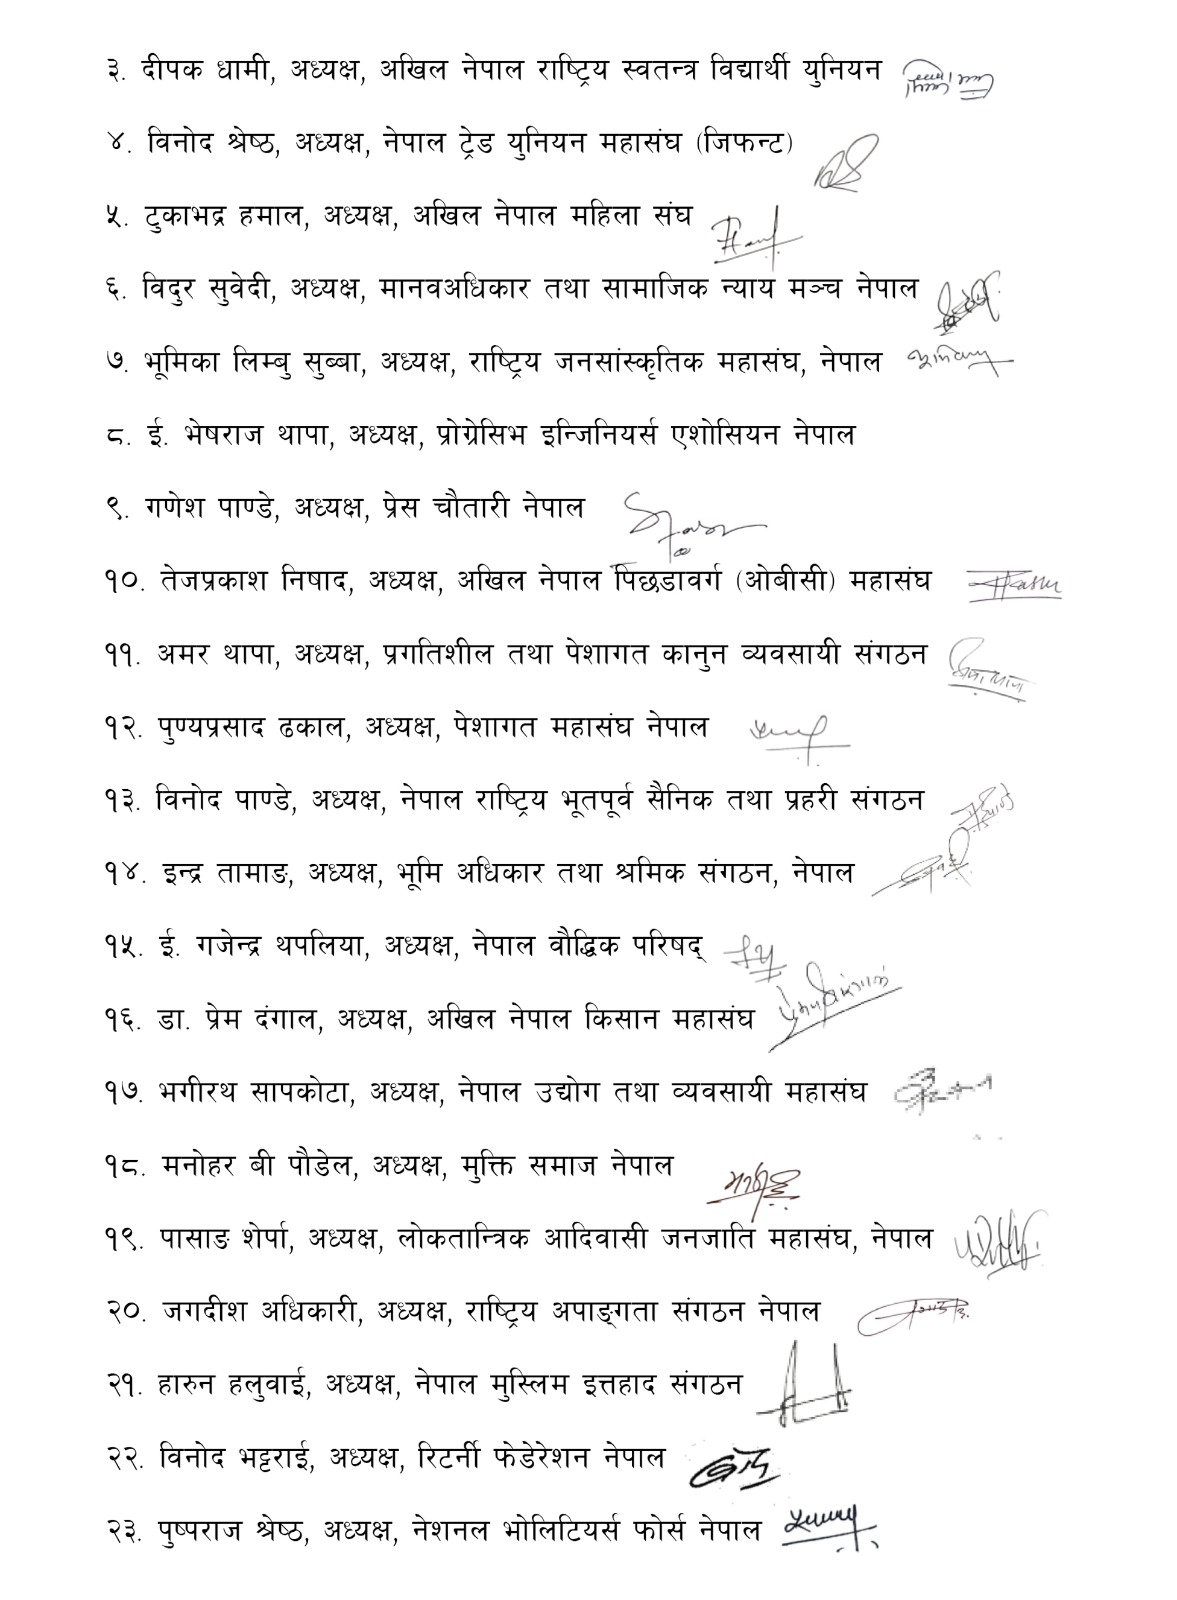 ३. दीपक धामी, अध्यक्ष, अखिल नेपाल राष्ट्रिय स्वतन्त्र विद्यार्थी युनियन
४. विनोद श्रेष्ठ, अध्यक्ष, नेपाल ट्रेड युनियन महासंघ (जिफन्ट)
५. टुकाभद्र हमाल, अध्यक्ष, अखिल नेपाल महिला संघ
६. विदुर सुवेदी, अध्यक्ष, मानवअधिकार तथा सामाजिक न्याय मञ्च नेपाल
७. भूमिका लिम्बु सुब्बा, अध्यक्ष, राष्ट्रिय जनसांस्कृतिक महासंघ, नेपाल
८. ई. भेषराज थापा, अध्यक्ष, प्रोग्रेसिभ इन्जिनियर्स एशोसियन नेपाल
९. गणेश पाण्डे, अध्यक्ष, प्रेस चौतारी नेपाल
१०. तेजप्रकाश निषाद, अध्यक्ष, अखिल नेपाल पिछडावर्ग (ओबीसी) महासंघ
११. अमर थापा, अध्यक्ष, प्रगतिशील तथा पेशागत कानुन व्यवसायी संगठन
१२. पुण्यप्रसाद ढकाल, अध्यक्ष, पेशागत महासंघ नेपाल
१३. विनोद पाण्डे, अध्यक्ष, नेपाल राष्ट्रिय भूतपूर्व सैनिक तथा प्रहरी संगठन
१४. इन्द्र तामाङ, अध्यक्ष, भूमि अधिकार तथा श्रमिक संगठन, नेपाल
१५. ई. गजेन्द्र थपलिया, अध्यक्ष, नेपाल वौद्धिक परिषद्
१६. डा. प्रेम दंगाल, अध्यक्ष, अखिल नेपाल किसान महासंघ
१७. भगीरथ सापकोटा, अध्यक्ष, नेपाल उद्योग तथा व्यवसायी महासंघ
१८. मनोहर बी पौडेल, अध्यक्ष, मुक्ति समाज नेपाल
१९. पासाङ शेर्पा, अध्यक्ष, लोकतान्त्रिक आदिवासी जनजाति महासंघ, नेपाल
२०. जगदीश अधिकारी, अध्यक्ष, राष्ट्रिय अपाङ्गता संगठन नेपाल
२१. हारुन हलुवाई, अध्यक्ष, नेपाल मुस्लिम इत्तहाद संगठन
२२. विनोद भट्टराई, अध्यक्ष, रिटर्नी फेडेरेशन नेपाल
२३. पुष्पराज श्रेष्ठ, अध्यक्ष, नेशनल भोलिटियर्स फोर्स नेपाल